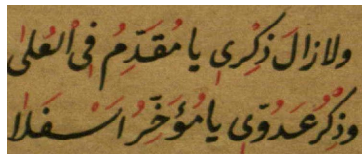 ولا زال ذكرى يا مقدّم فى العلى
وذكر عدوّى يا مؤخّر اسفلا